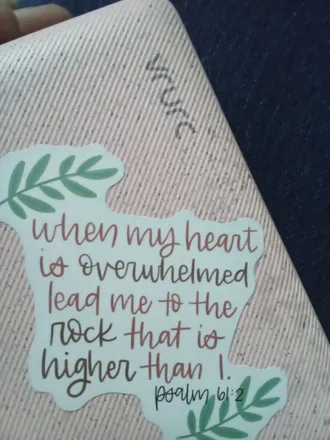 vrurc
when my heart
is overwhelmed
lead me to the
rock that is
higher than I.
psalm 61:2